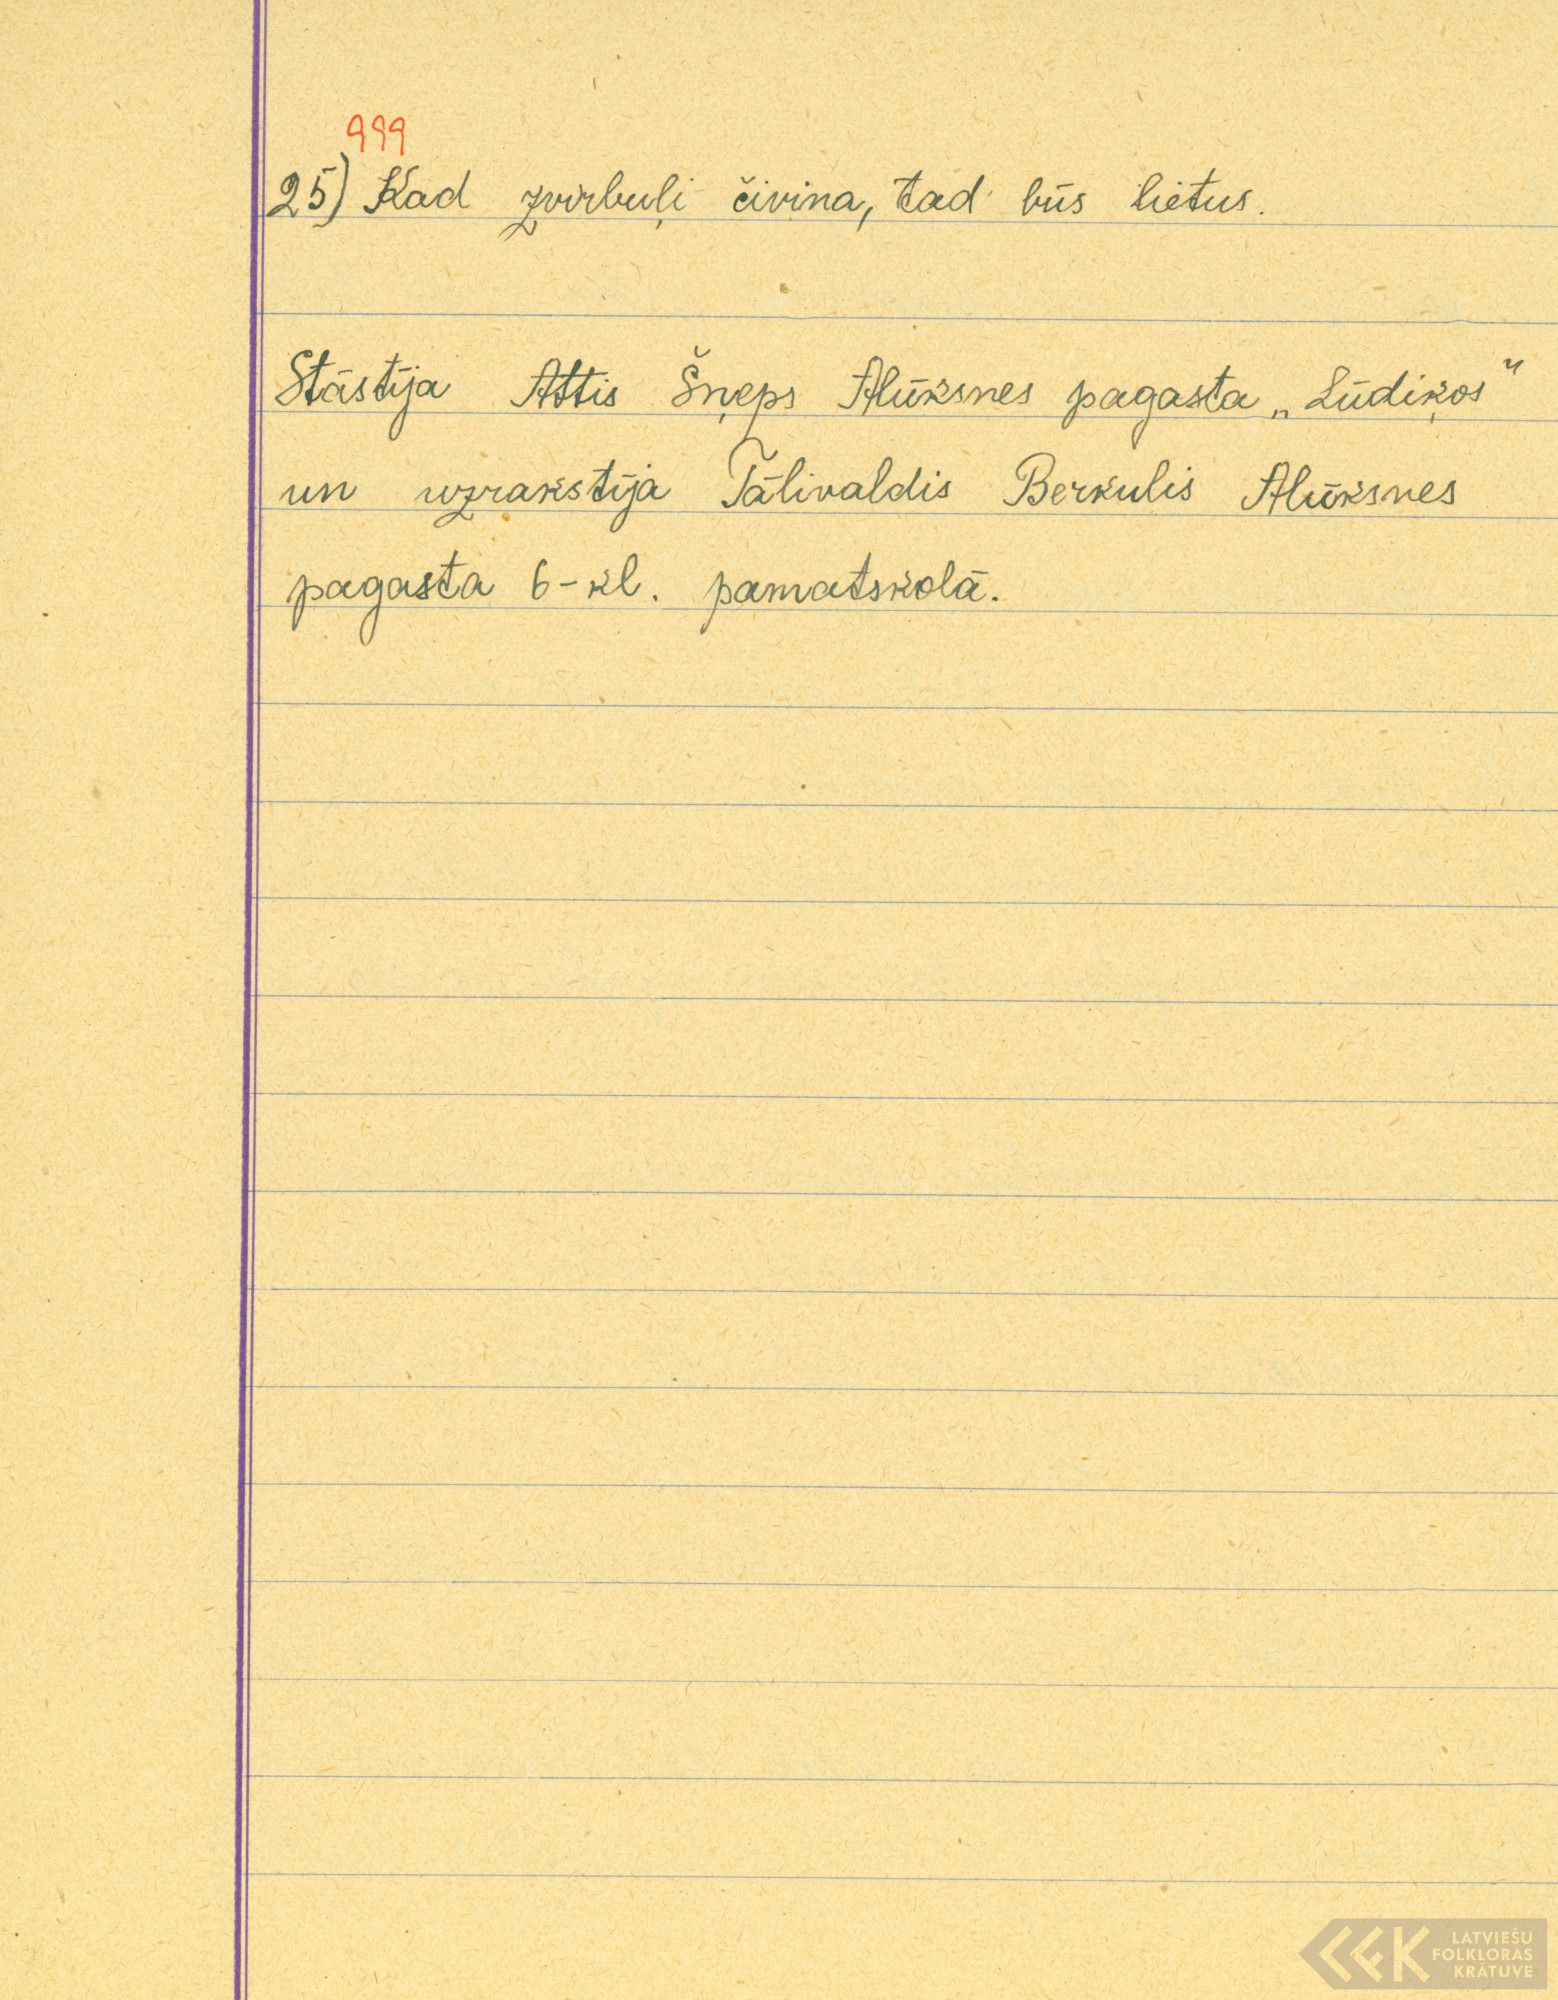 999
25) Kad zvirbuļi čivina, tad būs lietus.
Stāstīja Attis Šņeps Alūksnes pagasta „Lūdiķos“
un uzrakstīja Tālivaldis Berkulis Alūksnes
pagasta 6-kl. pamatskolā.
LATVIEŠU
FOLKLORAS
KRĀTUVE